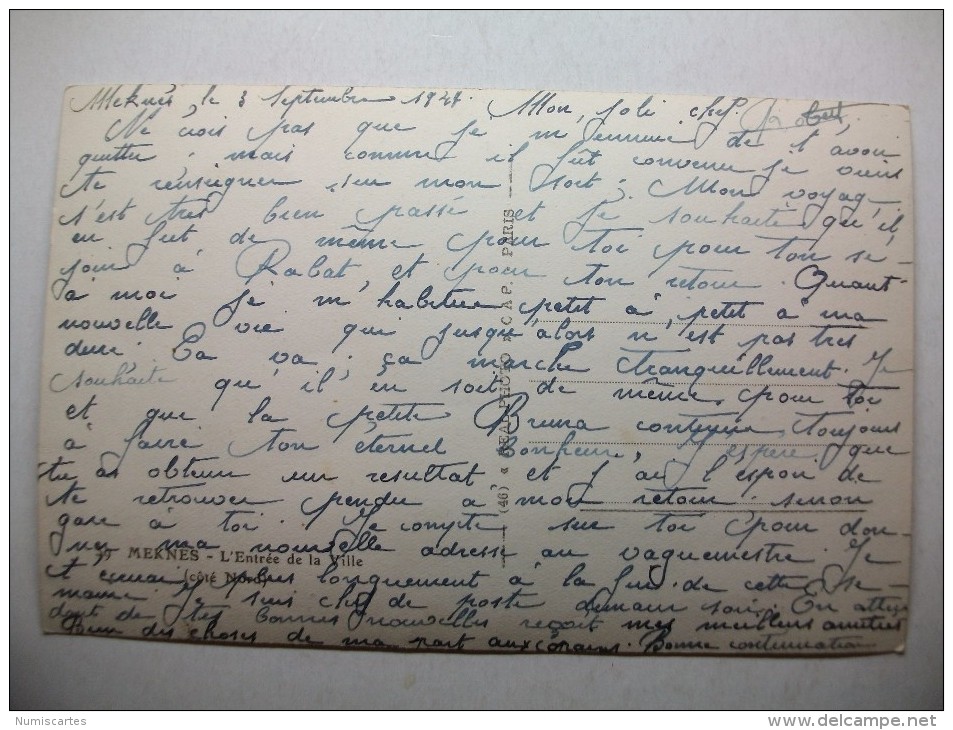 Meknès, le 3 Septembre 1947. Mon joli chef. Robert.
Ne crois pas que je m'ennuie de t'avoir
quitté, mais comme il fût convenu je viens
te renseigner sur mon sort. Mon voyag
s'est très bien passé et je souhaite qu'il
en fut de même pour toi pour ton sé-
jour à Rabat, et pour ton retour. Quant-
à moi je m'habitue petit à petit à ma
nouvelle vie qui jusqu'alors n'est pas très
dure. Ca va, ça marche tranquillement. Je
souhaite qu'il en soit de même pour toi
et que la petite Bruna continue, toujours
à faire ton éternel bonheur, j'espère que
tu as obtenu un resultat et j'ai l'espoir de
te retrouver pendu à mon retour sinon
gare à toi. Je compte sur toi pour don-
ner ma nouvelle adresse au vaguemestre. Je
39 MEKNES - L'Entrée de la Ville
(côté Nord)
t'écrirai plus longuement à la fin de cette se-
maine. Je suis chef de poste demain soir. En atten
dant de tes bonnes nouvelles reçoit mes meilleurs amitiés
Bien des choses de ma part aux copains. Bonne continuation
(46) « REAL-PHOTO » C.A.P. PARIS
Numiscartes
delcampe.net